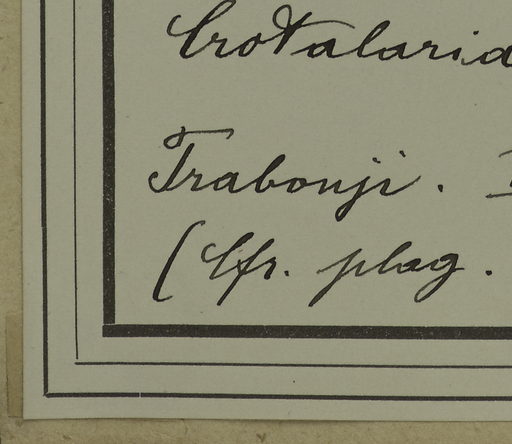 Crotalaria
Trabonji.
(Cfr. plag.